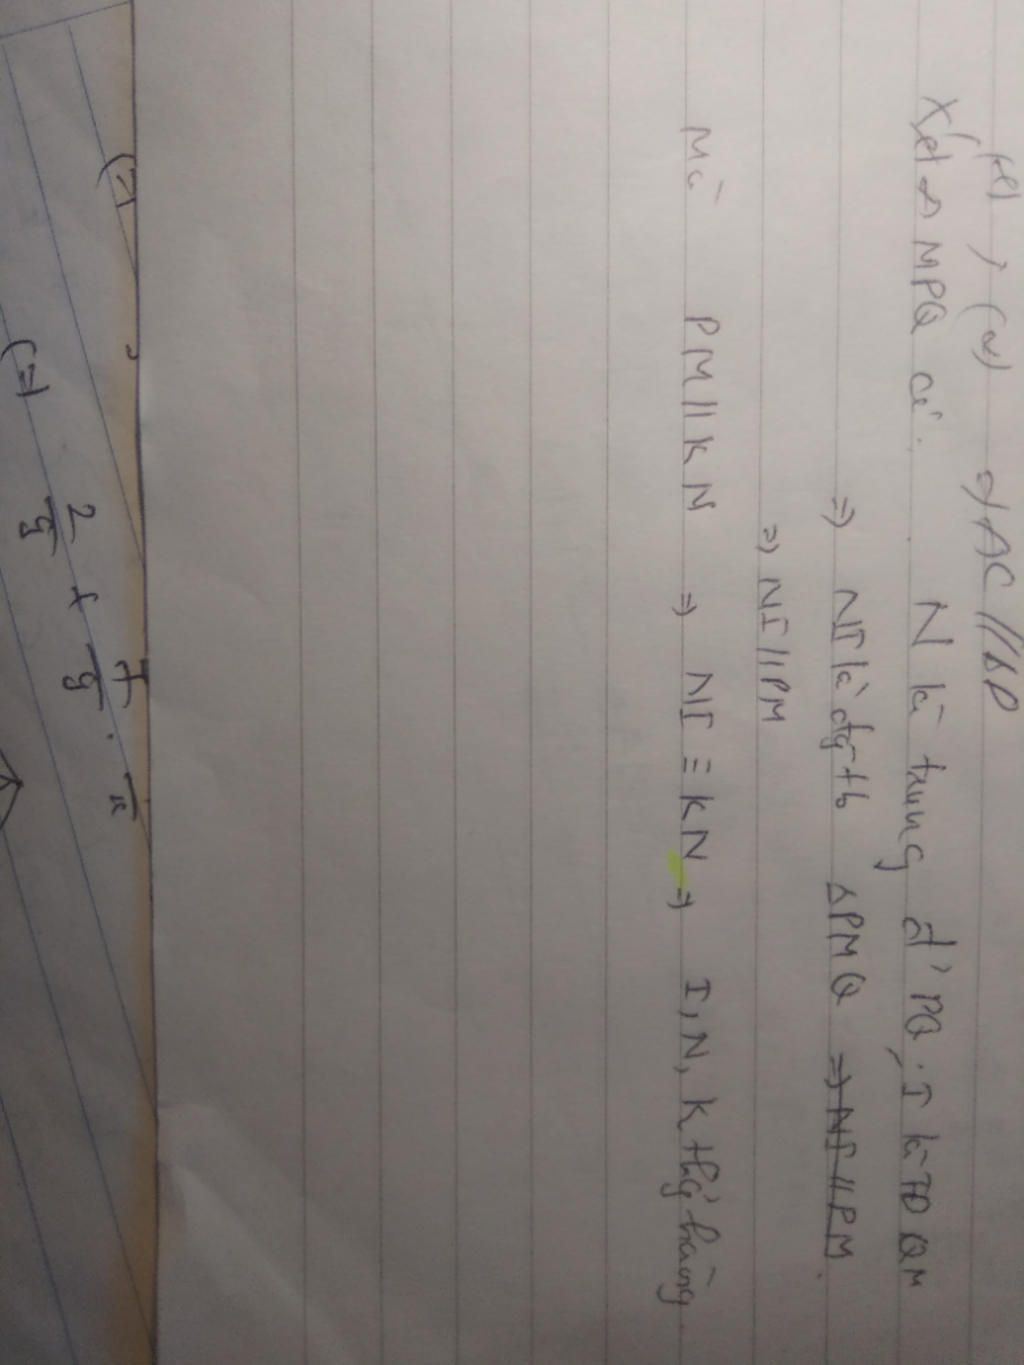 (1), (2) ⇒ AC // BD
Xét Δ MPQ có: N là trung đ' PQ, I là TĐ QM
⇒ NI là đg tb ΔPMQ ⇒ NI // PM.
⇒ NI // PM
Mà PM // KN ⇒ NI ≡ KN ⇒ I, N, K thg̉ hàng.
(=)
(=) 2/9 +